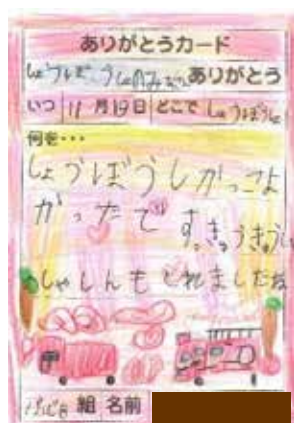 ありがとうカード
しょうぼうしょのみなさんありがとう
いつ 11月19日 どこで しょうぼうしょ
何を・・・
しょうぼうしかっこよ
かったです
しゃしんもとれましたね
組 名前